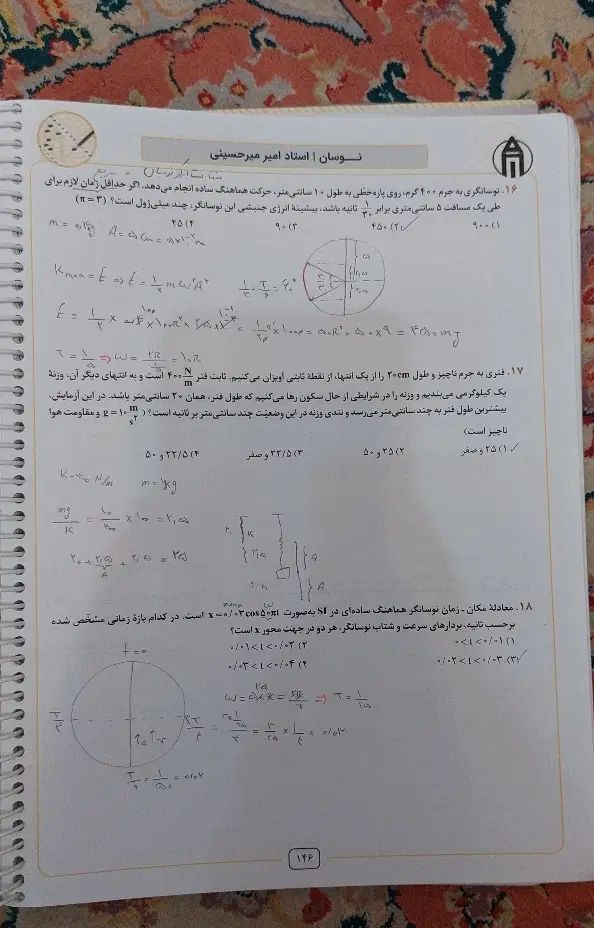 نـوسان | استاد امیر میرحسینی
۱۶. نوسانگری به جرم ۴۰۰ گرم، روی پاره‌خطی به طول ۱۰ سانتی‌متر، حرکت هماهنگ ساده انجام می‌دهد. اگر حداقل زمان لازم برای
طی یک مسافت ۵ سانتی‌متری برابر ۱/۳۰ ثانیه باشد، بیشینهٔ انرژی جنبشی این نوسانگر، چند میلی‌ژول است؟ (π = ۳)
۱) ۹۰۰ ۲) ۴۵۰ ۳) ۹۰ ۴) ۴۵
K max = E ⇒ E = ۱/۲ m ω² A²
T = ۱/۵ ⇒ ω = ۲π/۱/۵ = ۱۰π
۱۷. فنری به جرم ناچیز و طول ۲۰cm را از یک انتها، از نقطهٔ ثابتی آویزان می‌کنیم. ثابت فنر ۴۰۰ N/m است و به انتهای دیگر آن، وزنهٔ
یک کیلوگرمی می‌بندیم و وزنه را در شرایطی از حال سکون رها می‌کنیم که طول فنر، همان ۲۰ سانتی‌متر باشد. در این آزمایش،
بیشترین طول فنر به چند سانتی‌متر می‌رسد و تندی وزنه در این وضعیت چند سانتی‌متر بر ثانیه است؟ (g = ۱۰ m/s² و مقاومت هوا
ناچیز است)
۱) ۲۵ و صفر ۲) ۲۵ و ۵۰ ۳) ۲۲/۵ و صفر ۴) ۲۲/۵ و ۵۰
K = ۴۰۰ N/m m = ۱kg
mg/K = ۱۰/۴۰۰ × ۱۰۰ = ۲,۵
۲۰ + ۲,۵ + ۲,۵ = ۲۵
۱۸. معادلهٔ مکان - زمان نوسانگر هماهنگ ساده‌ای در SI به‌صورت x = ۰/۰۳ cos ۵۰πt است. در کدام بازهٔ زمانی مشخّص شده
برحسب ثانیه، بردارهای سرعت و شتاب نوسانگر، هر دو در جهت محور x است؟
۱) ۰ < t < ۰/۰۱ ۲) ۰/۰۱ < t < ۰/۰۲
۳) ۰/۰۲ < t < ۰/۰۳ ۴) ۰/۰۳ < t < ۰/۰۴
t = ۰
۱۴۶